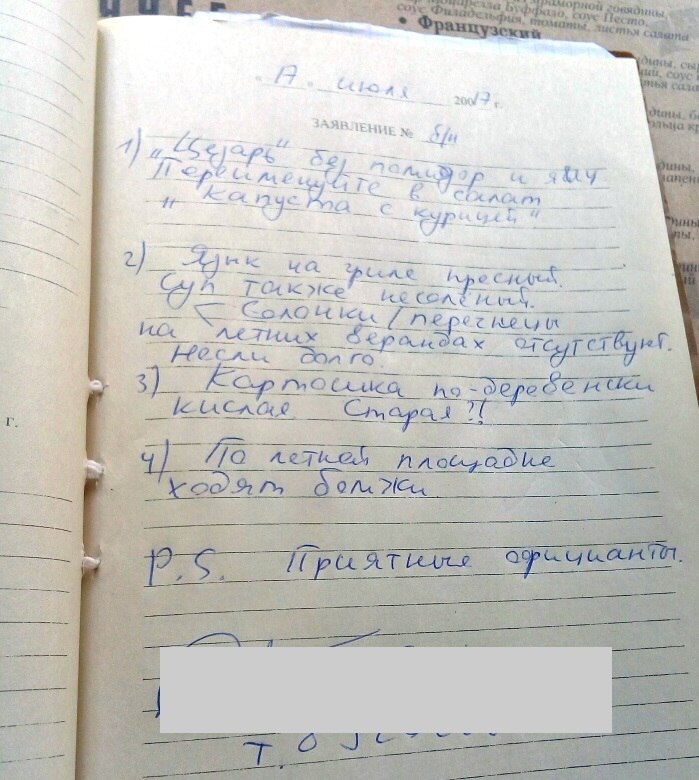 мраморной говядины,
моцарелла Буффало, соус Песто,
соус Филадельфия, томаты, листья салата
• Французский
17 июля 2007 г.
ЗАЯВЛЕНИЕ № б/н
1) „Цезарь" без помидор и яиц
Переимещуйте в салат
„ Капуста с курицей "
2) Язык на гриле пресный.
Суп также несолёный.
< Солонки / перечницы
на летних верандах отсутствуют.
Несли долго.
3) Картошка по-деревенски
кислая. Старая?!
4) По летней площадке
ходят бомжи
P.S. Приятные официанты.
г.